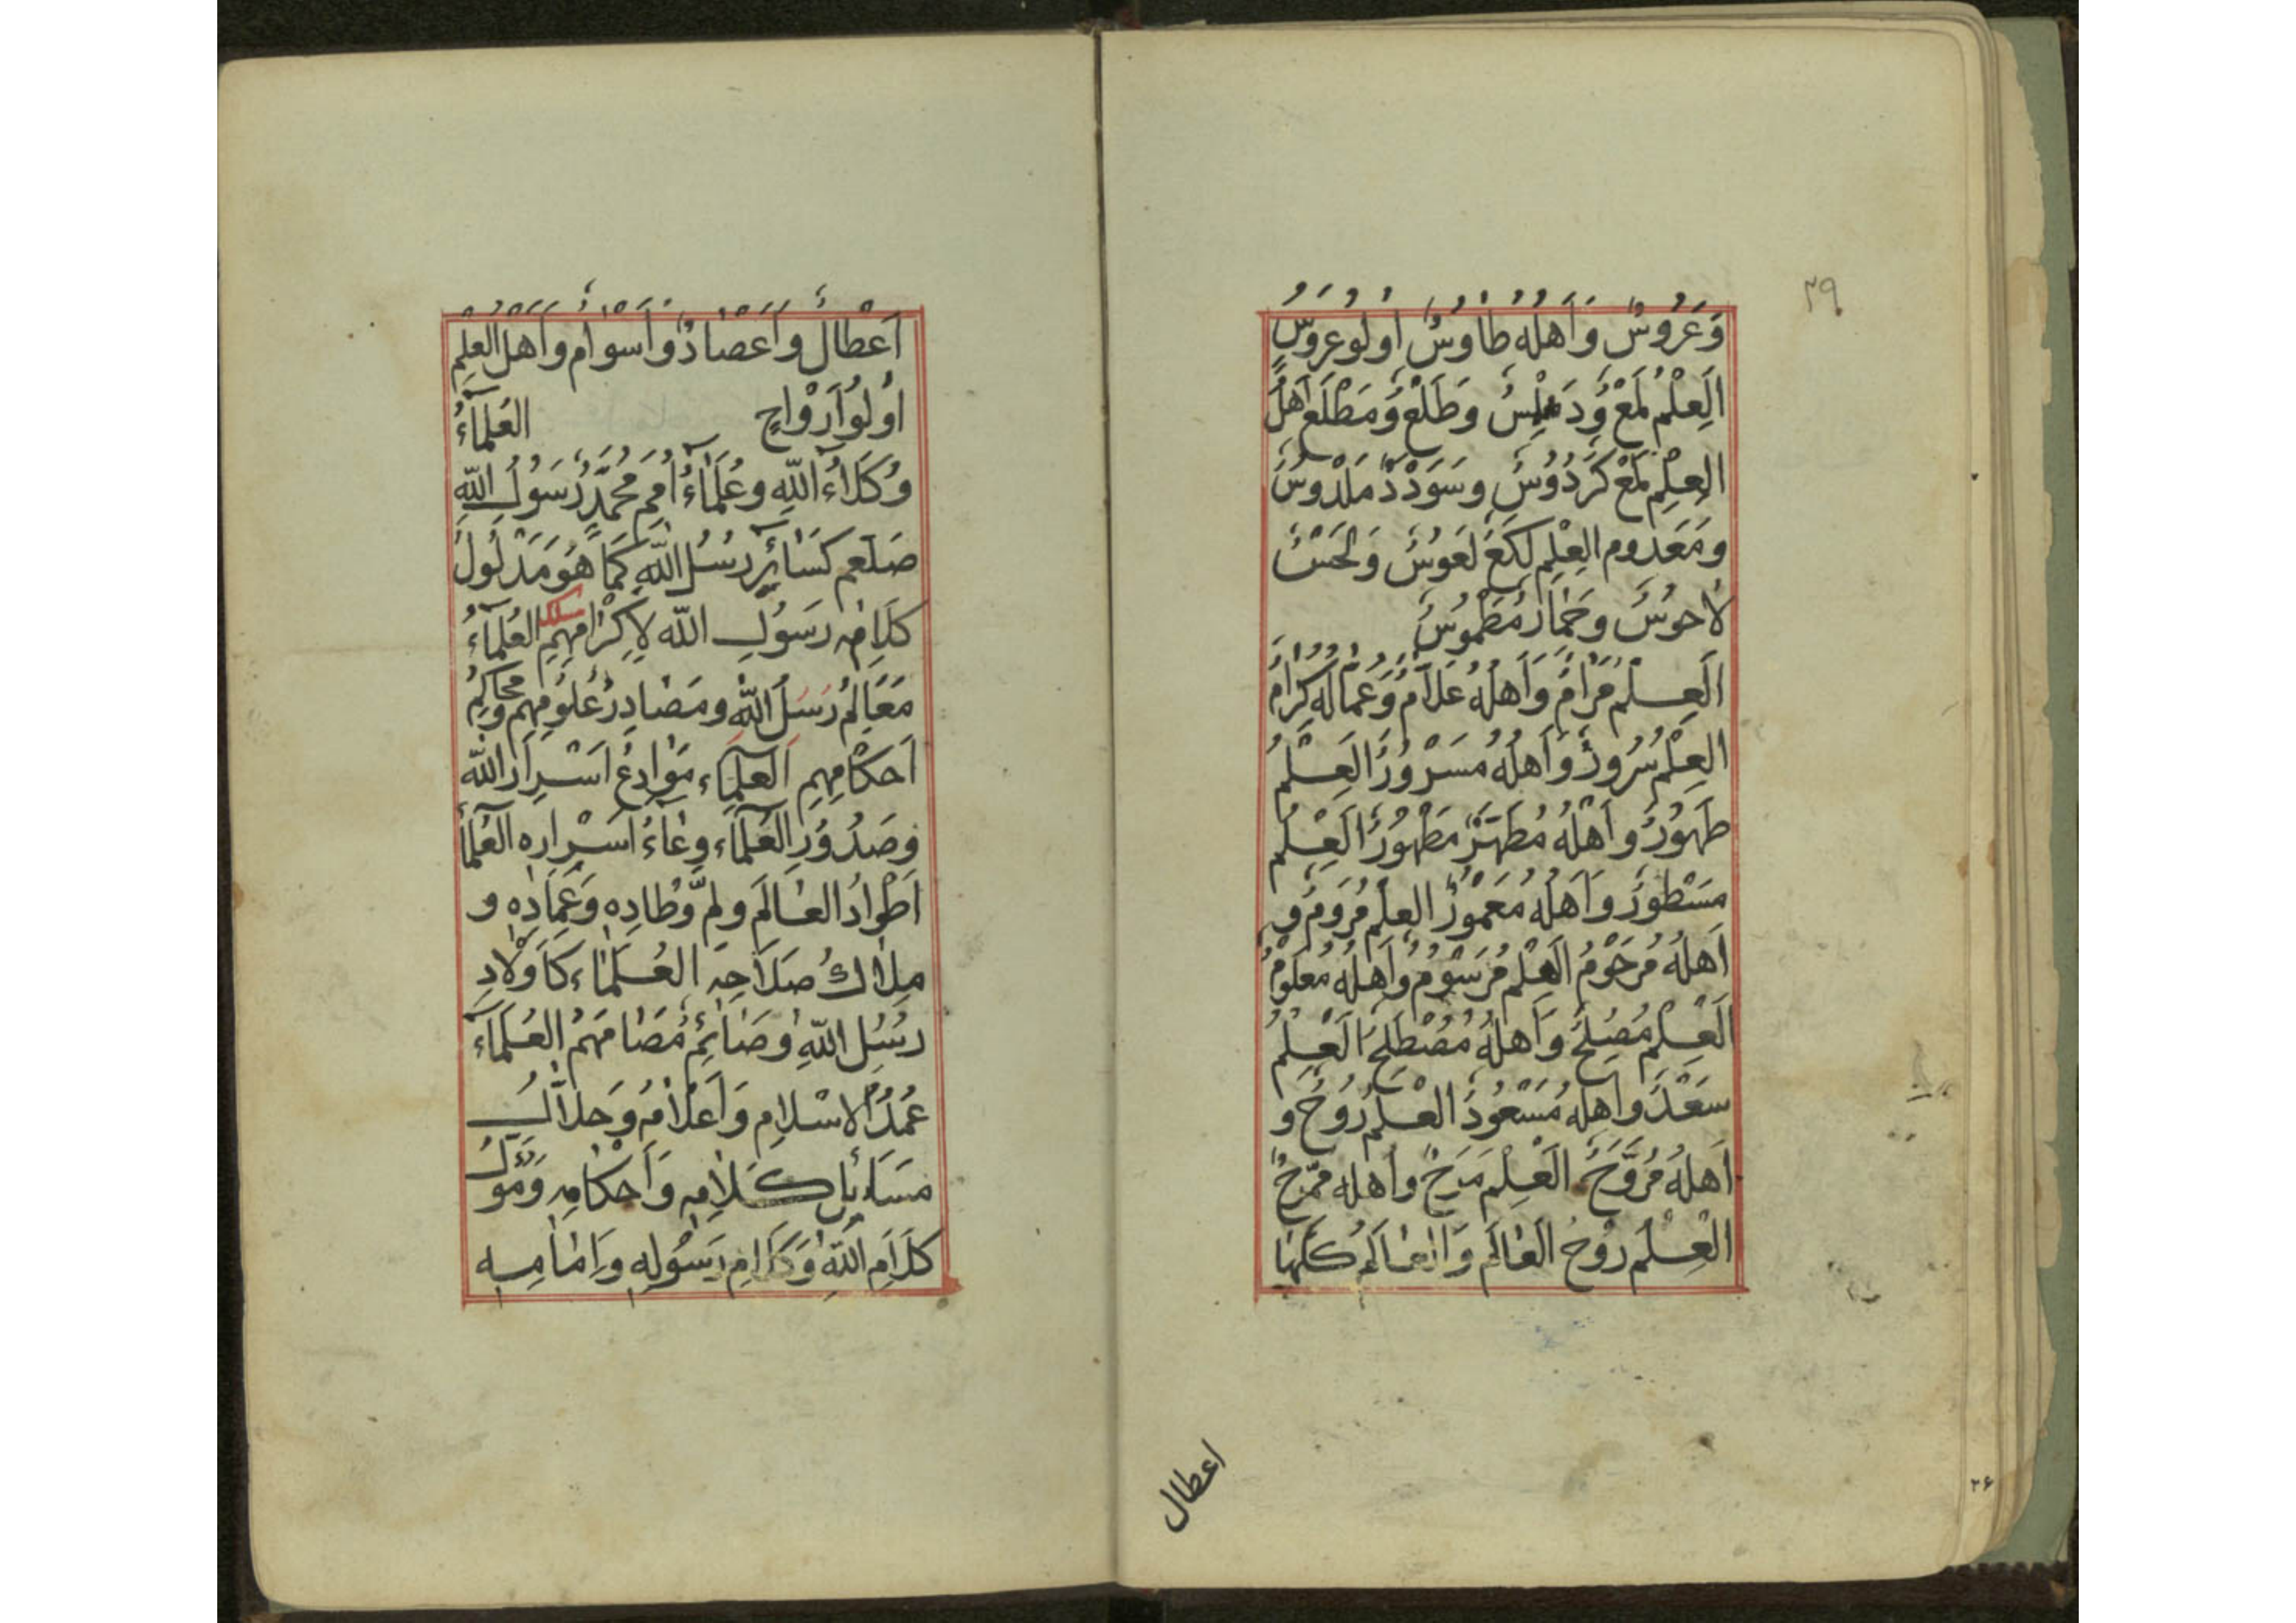 ٢٩
وَعَرُوسٌ وَاَهلُه طاوُسٌ اولُو عروسٍ
اَلعِلْمُ لَمْعٌ وَطَلْعٌ وَمَطْلَع اَهلُ
العِلْمِ لَمْعُ كَرْدُوُسٍ وسَوْدَدْ مَلْدوُسٌ
ومَعَدوم العِلْمِ لكَعٌ لَعوُسٌ وَلَحَسٌ
لاحوُسٌ وحَمارٌ مَطْمُوسٌ
اَلعِلْمُ مَرامٌ وَاَهلُهُ عَلّامٌ وَعُمّالُه كِرامٌ
العِلْمُ سُروُرٌ وَاَهلُهُ مَسْرُورٌ العِلْمُ
طَهوُرٌ واَهْلُهُ مُطَهّرٌ مَطْهُورٌ العِلْمُ
مَسْطُورٌ وَاَهلُهُ مَعْمُورٌ العِلْمُ مَرومٌ و
اَهلُهُ مَرحُومٌ العِلْمُ مَرسُومٌ واَهلُهُ مَعلُومٌ
اَلعِلْمُ مُصْلِحٌ وَاَهلُهُ مُصْطَلِحٌ العِلْمُ
سَعْدٌ واَهلُه مَسْعُودٌ العِلْمُ رُوحٌ و
اَهلُهُ مُرَوَّحٌ العِلْمُ مَرَحٌ واَهله مُمَرَّحٌ
العِلْمُ رُوحُ العٰالَمِ وَالعٰالَمُ كُلّهٰا
اعطال
٢۶
اَعْطٰالٌ واَعْضٰادٌ واَسوٰام واَهلُ العِلْمِ
اولُو اَرْوٰاحٍ العُلَمآءُ
وُكَلاءُ اللهِ وعُلَمٰاءُ اُمَمِ مُحَمّدٍ رَسوُلِ اللهِ
صَلعم كَسٰائِرِ رُسُلِ اللهِ كَما هُوَ مَدْلُولُ
كَلامِ رَسُولِ اللّه لإِكرٰامِهِمِ العُلَمآءُ
مَعٰالِمُ رُسُلِ اللهِ ومَصٰادِرُ عُلوُمِهِم ومَحٰاكِمُ
اَحكٰامِهِمِ العُلَمآء مَوٰادِعُ اَسْرٰارِ اللّه
وصُدُورِ العُلَمآء وِعٰاءُ اَسْرٰارِه العُلَمآءُ
اَطْوٰادُ العٰالَمِ ولِمَ وِطٰادِهِ وَعِمٰادِهِ و
مِلاكُ صَلاحِهِ العُلَمٰاء كَاَوْلادِ
رُسُلِ اللهِ العُلَمآءُ
عُمُدُ الاسْلامِ وَاَعْلامُهُ وَحَلّالُ
مَسٰائِلِ كَلامِهِ وَاَحْكامِهِ
كَلامِ اللهِ وَكَلامِ رَسُولِهِ وَاِمٰامِهِ